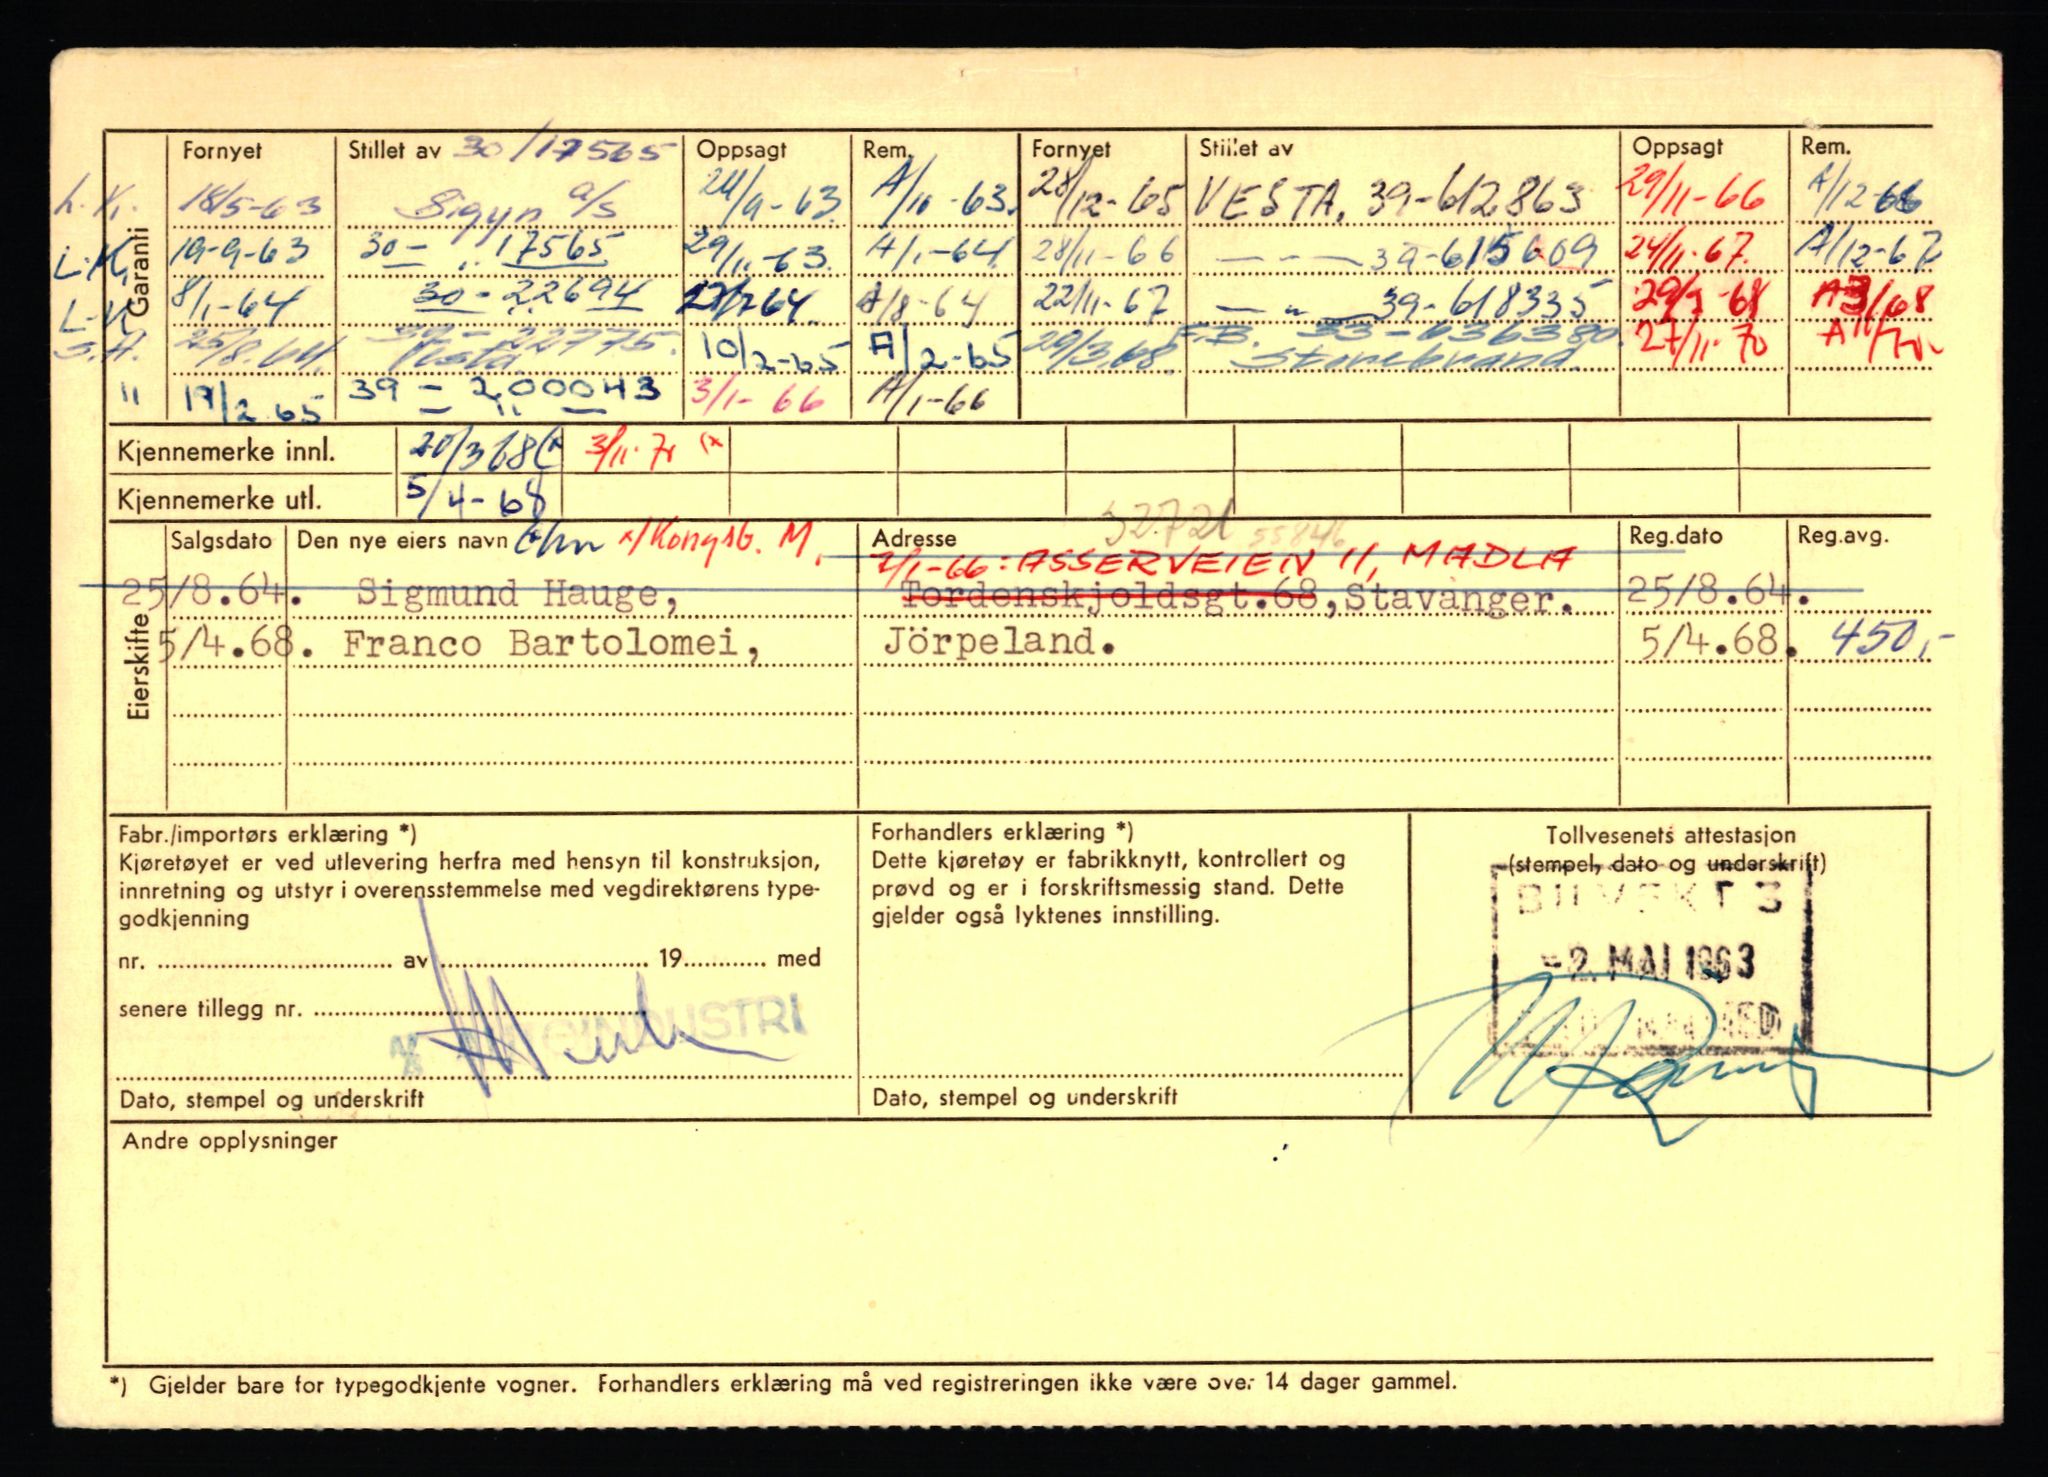 Garanti
Fornyet Stillet av 30/17565 Oppsagt Rem. Fornyet Stillet av Oppsagt Rem.
L.K. 18/5-63 Sigyn a/s 24/9-63. A/10-63. 28/12-65 VESTA. 39-612863 29/11-66 A/12-66
L.K. 19-9-63 30- „ 17565 29/11-63. A/1-64. 28/11-66 — - — 39-615609 24/11-67. A/12-67
L-K 8/1-64 30-22694 A/8-64 22/11-67 — „ — 39-618335 A3/68
S.H. 25/8.64. Vesta 10/2-65 A/2-65 29/3.68. Storebrand 27/11-70
" 17/2.65 39 - 200043 3/1-66 A/1-66
Kjennemerke innl. 20/3 68 (x 3/11.70 (x
Kjennemerke utl. 5/4-68
Eierskifte
Salgsdato Den nye eiers navn x/Kongsb. M. Adresse 32721 55846 Reg.dato Reg.avg.
7/1-66: ASSERVEIEN 11, MADLA
25/8.64. Sigmund Hauge, Tordenskjoldsgt.68,Stavanger. 25/8.64.
5/4.68. Franco Bartolomei, Jörpeland. 5/4.68. 450,-
Fabr./importørs erklæring *)
Kjøretøyet er ved utlevering herfra med hensyn til konstruksjon,
innretning og utstyr i overensstemmelse med vegdirektørens type-
godkjenning
nr. av 19 med
senere tillegg nr.
INDUSTRI
Dato, stempel og underskrift
Forhandlers erklæring *)
Dette kjøretøy er fabrikknytt, kontrollert og
prøvd og er i forskriftsmessig stand. Dette
gjelder også lyktenes innstilling.
Dato, stempel og underskrift
Tollvesenets attestasjon
(stempel, dato og underskrift)
-2. MAI 1963
Andre opplysninger
*) Gjelder bare for typegodkjente vogner. Forhandlers erklæring må ved registreringen ikke være over 14 dager gammel.